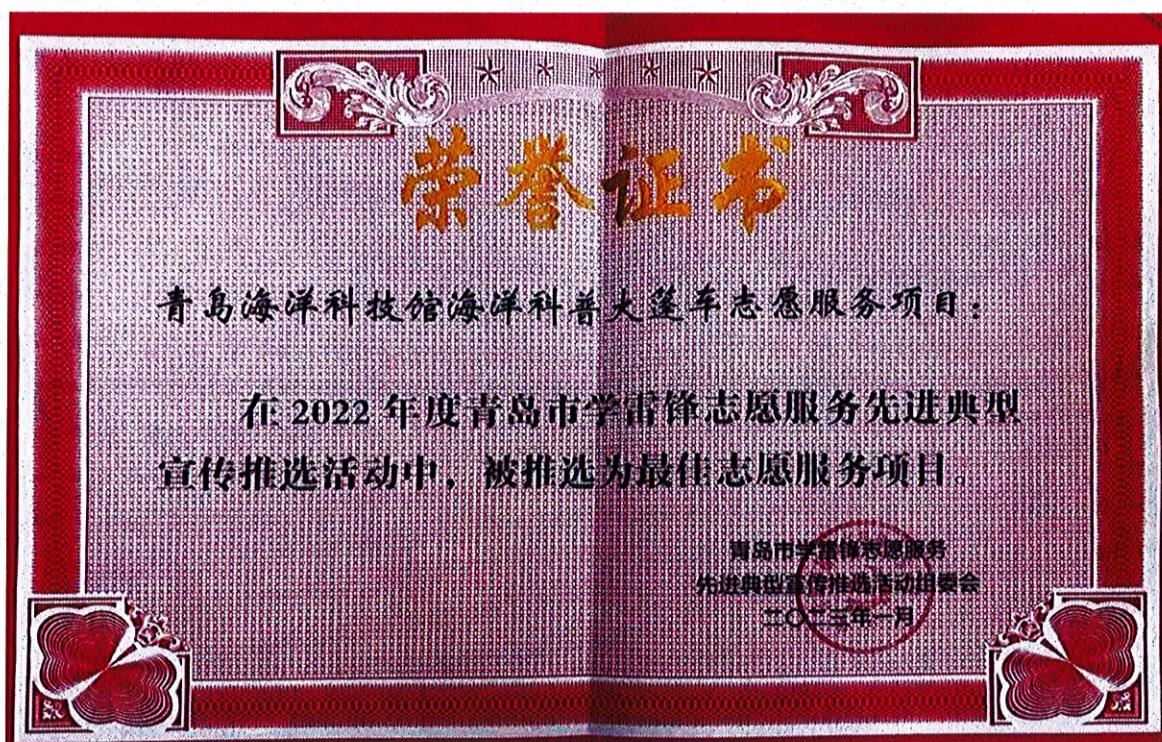 荣誉证书
青岛海洋科技馆海洋科普大篷车志愿服务项目：
在 2022 年度青岛市学雷锋志愿服务先进典型
宣传推选活动中，被推选为最佳志愿服务项目。
青岛市学雷锋志愿服务
先进典型宣传推选活动组委会
二〇二三年一月